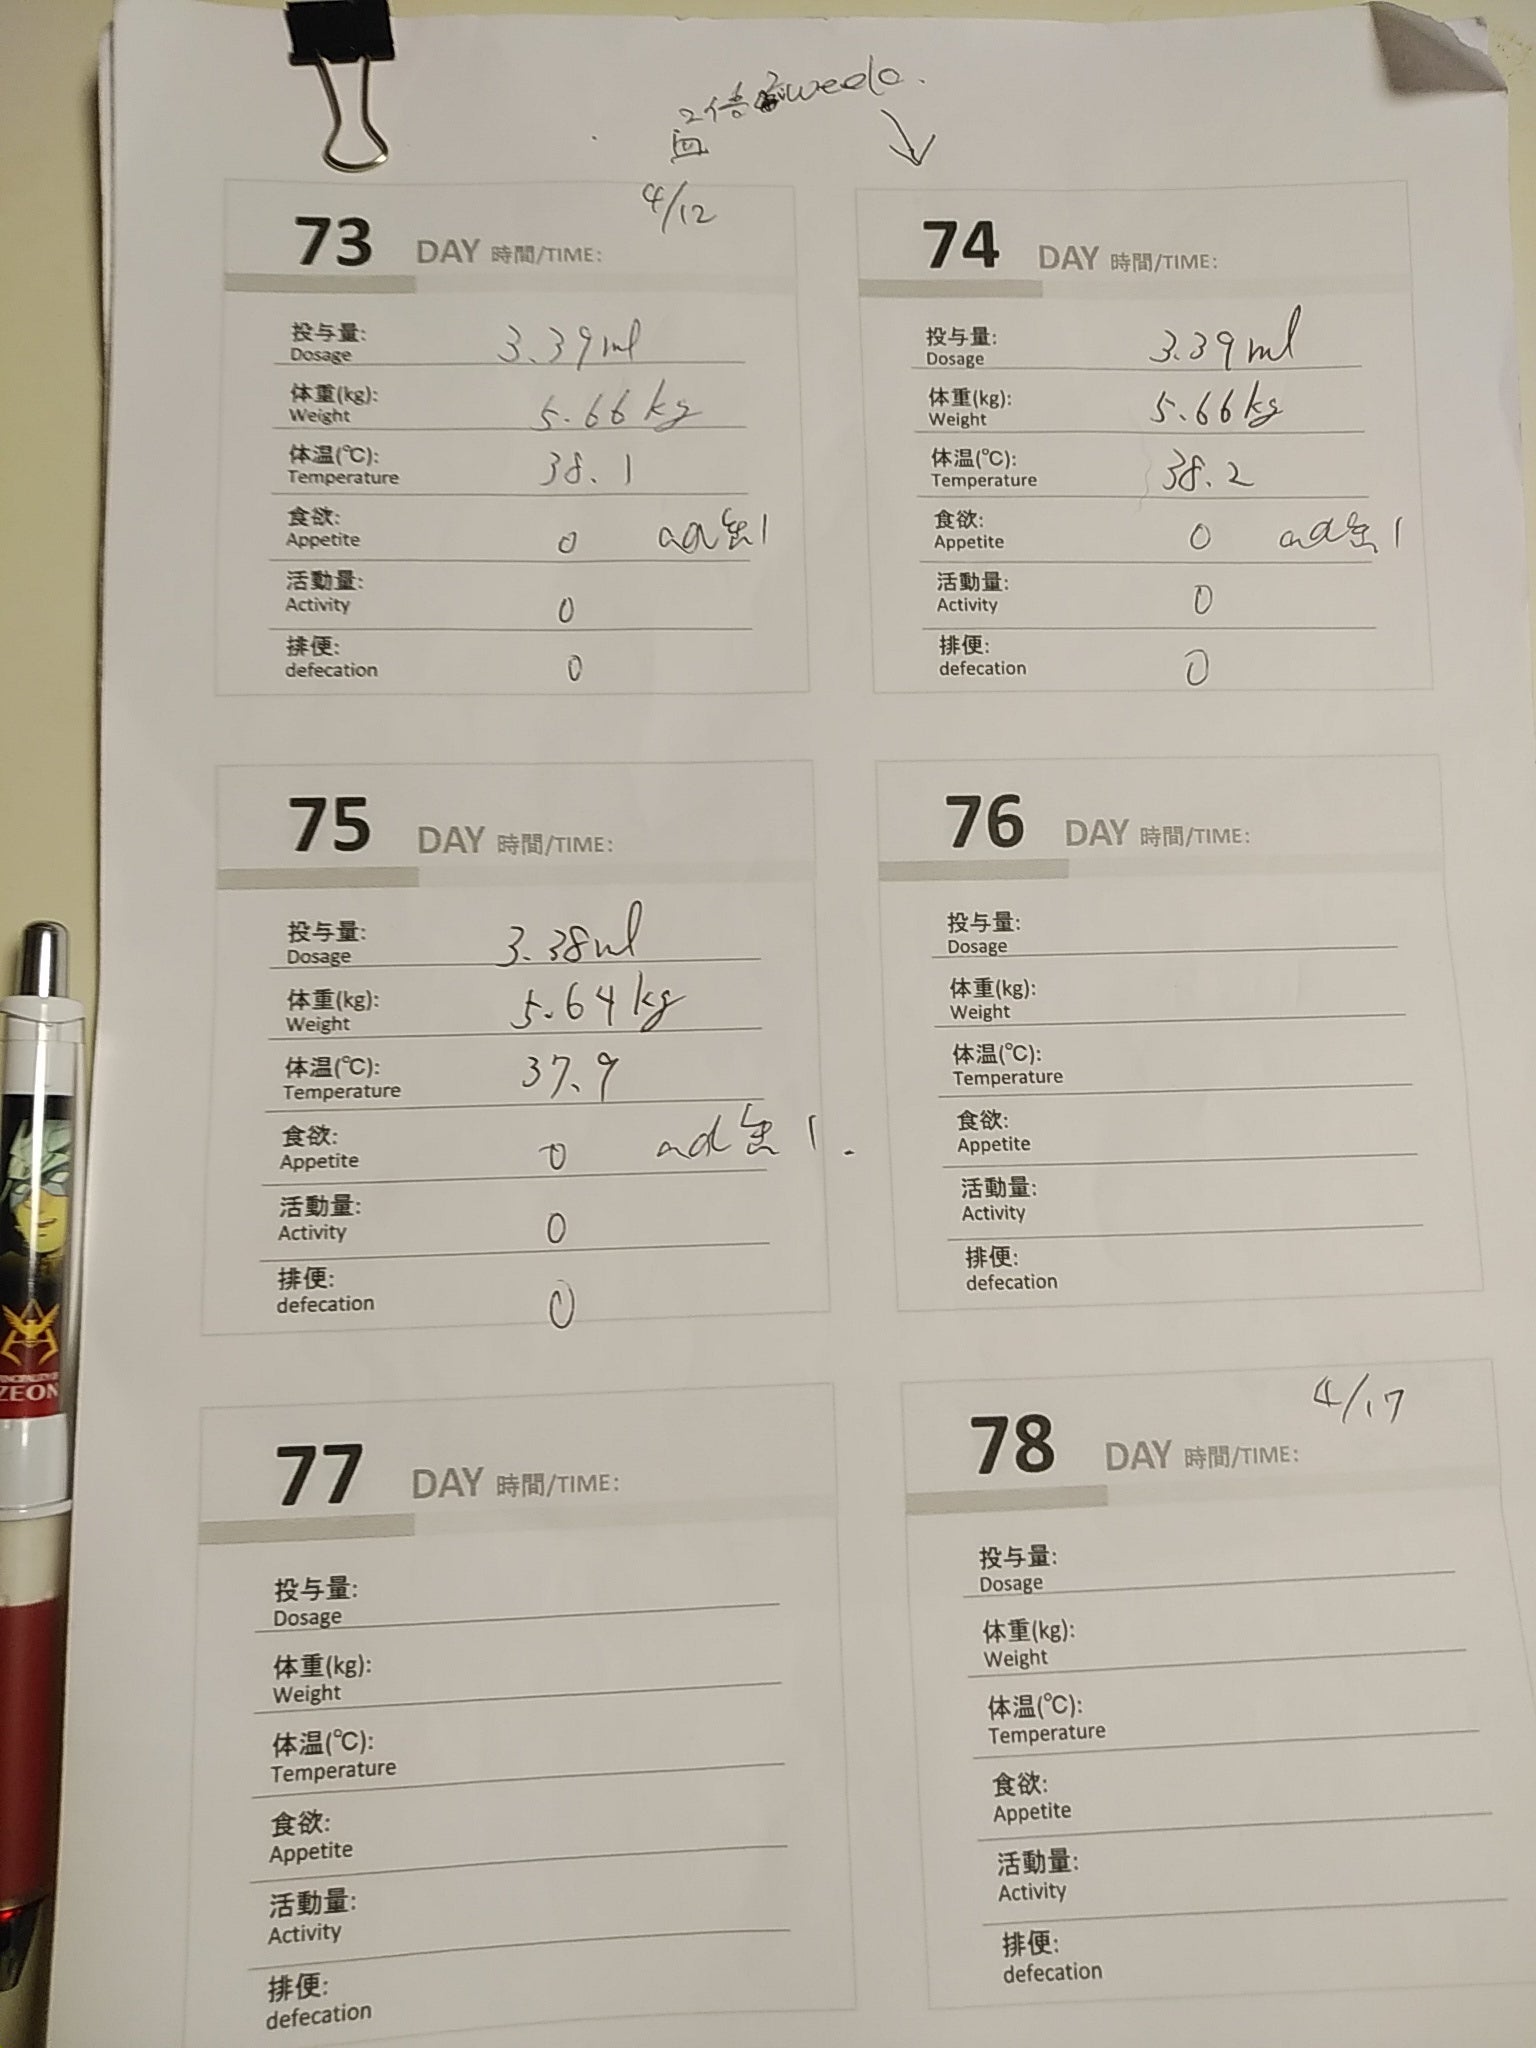 week.
4/12
73 DAY 時間/TIME:
投与量:
Dosage 3.39ml
体重(kg):
Weight 5.66kg
体温(℃):
Temperature 38.1
食欲:
Appetite 0 ad缶1
活動量:
Activity 0
排便:
defecation 0
74 DAY 時間/TIME:
投与量:
Dosage 3.39ml
体重(kg):
Weight 5.66kg
体温(℃):
Temperature 38.2
食欲:
Appetite 0 ad缶1
活動量:
Activity 0
排便:
defecation 0
75 DAY 時間/TIME:
投与量:
Dosage 3.38ml
体重(kg):
Weight 5.64kg
体温(℃):
Temperature 37.9
食欲:
Appetite 0 ad缶1.
活動量:
Activity 0
排便:
defecation 0
76 DAY 時間/TIME:
投与量:
Dosage
体重(kg):
Weight
体温(℃):
Temperature
食欲:
Appetite
活動量:
Activity
排便:
defecation
77 DAY 時間/TIME:
投与量:
Dosage
体重(kg):
Weight
体温(℃):
Temperature
食欲:
Appetite
活動量:
Activity
排便:
defecation
4/17
78 DAY 時間/TIME:
投与量:
Dosage
体重(kg):
Weight
体温(℃):
Temperature
食欲:
Appetite
活動量:
Activity
排便:
defecation
ZEON